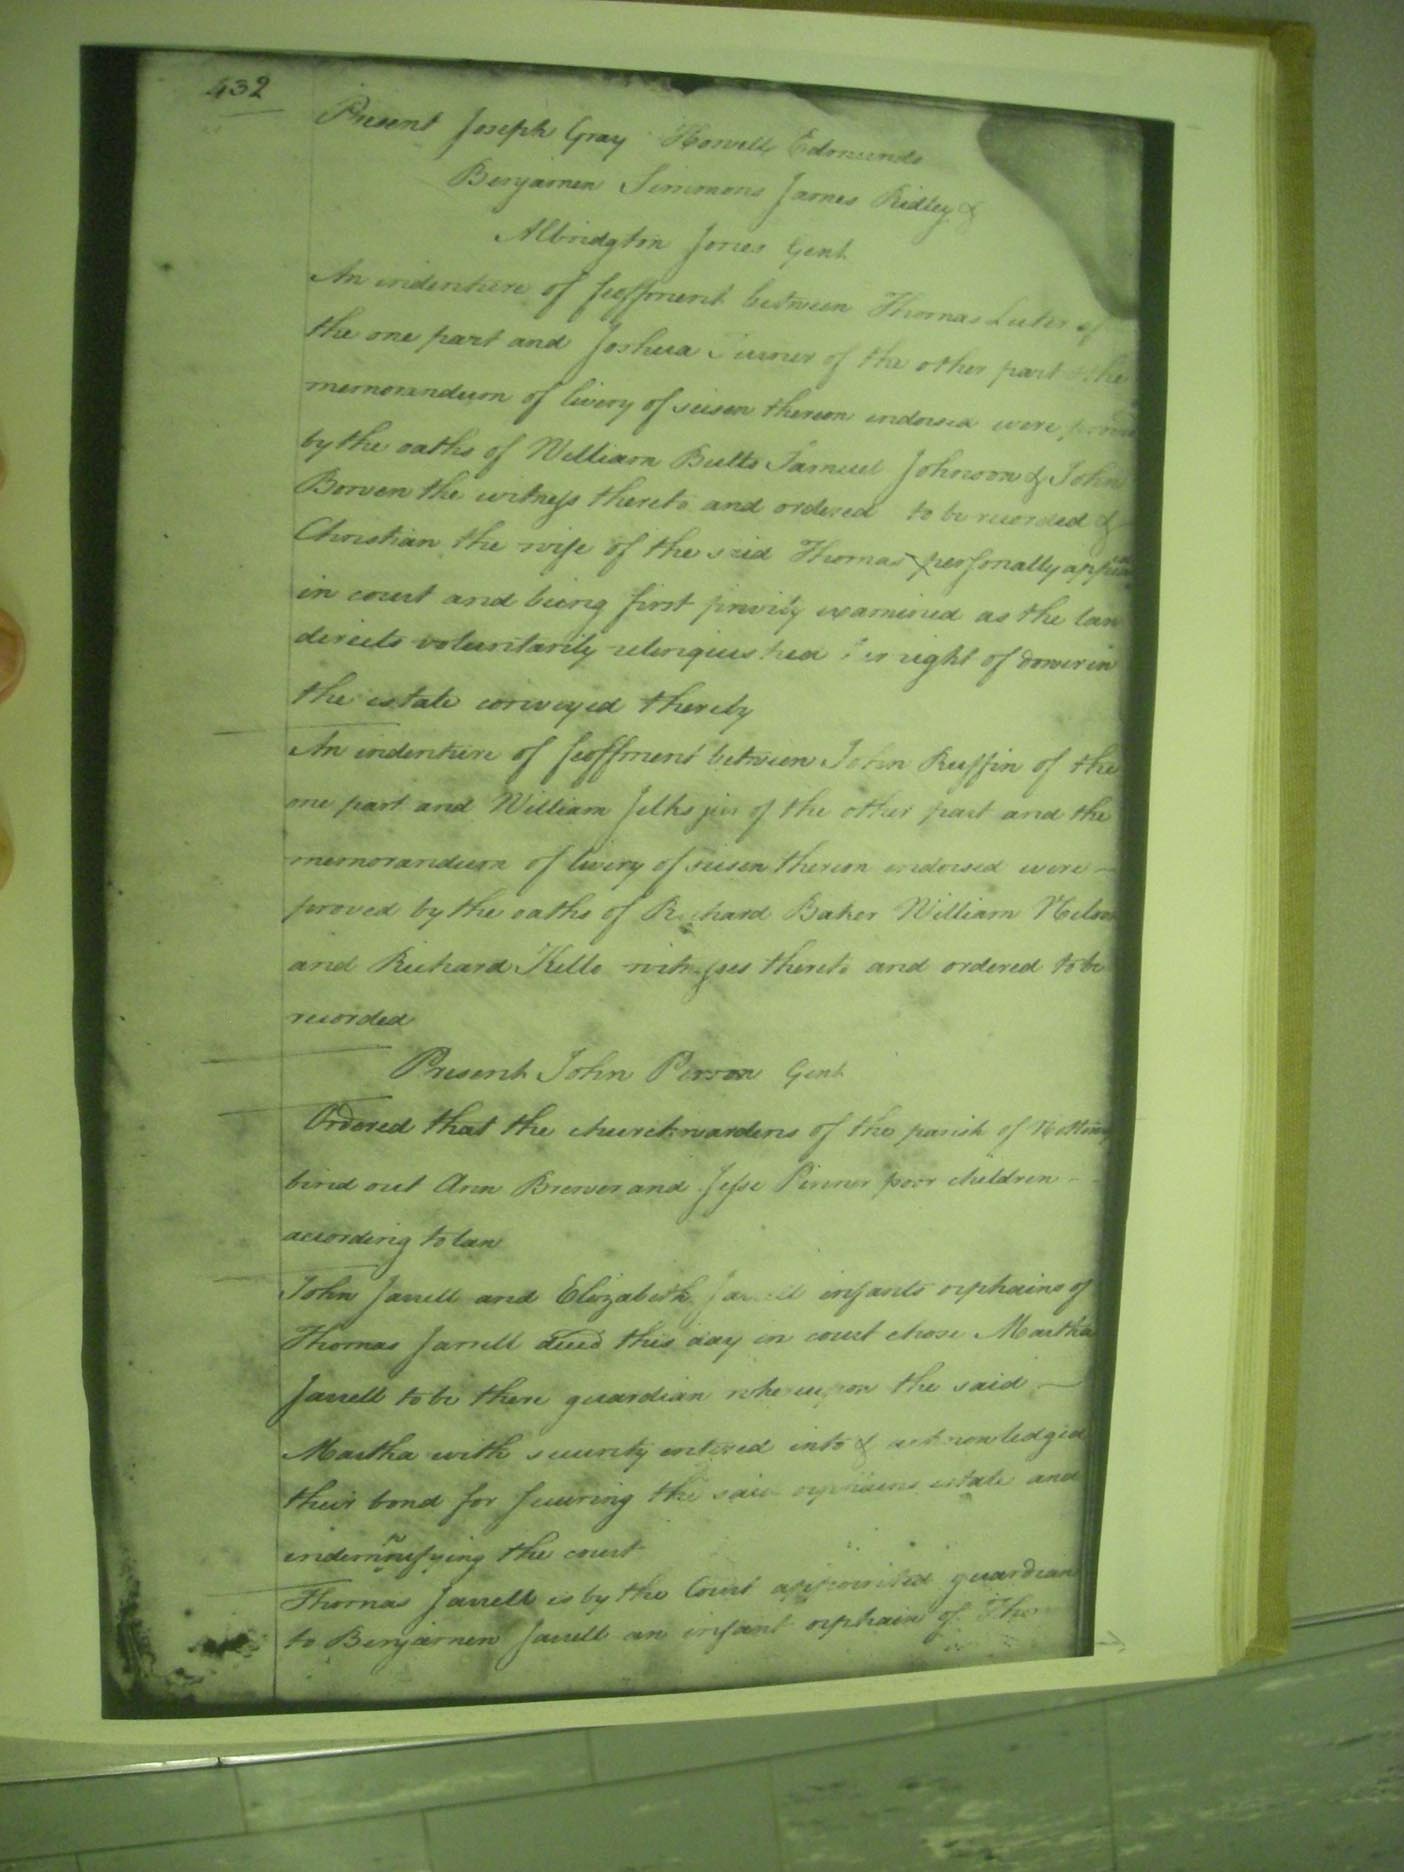 432
Present Joseph Gray Howell Edmunds
Benjamen Simmons James Ridley &
Albridgton Jones Gent
An indenture of feoffment between Thomas Luter of
the one part and Joshua Turner of the other part & the
memorandum of livery of seisen thereon indorsed were proved
by the oaths of William Butts Samuel Johnson & John
Bowen the witness thereto and ordered to be recorded &
Christian the wife of the said Thomas personally appeared
in court and being first privily examined as the law
directs voluntarily relinquished her right of dower in
the estate conveyed thereby
An indenture of feoffment between John Ruffin of the
one part and William Jelks jur of the other part and the
memorandum of livery of seisen thereon indorsed were
proved by the oaths of Richard Baker William Nelson
and Richard Kello witnesses thereto and ordered to be
recorded
Present John Person Gent
Ordered that the churchwardens of the parish of
bind out Ann Brewer and Jesse Pinner poor children
according to law
John Jarrell and Elizabeth Jarrell infants orphains of
Thomas Jarrell decd this day in court chose Martha
Jarrell to be there guardian whereupon the said
Martha with security entered into & acknowledged
their bond for securing the said orphains estate and
indemnifying the court
Thomas Jarrell is by the Court appointed guardian
to Benjamen Jarrell an infant orphain of